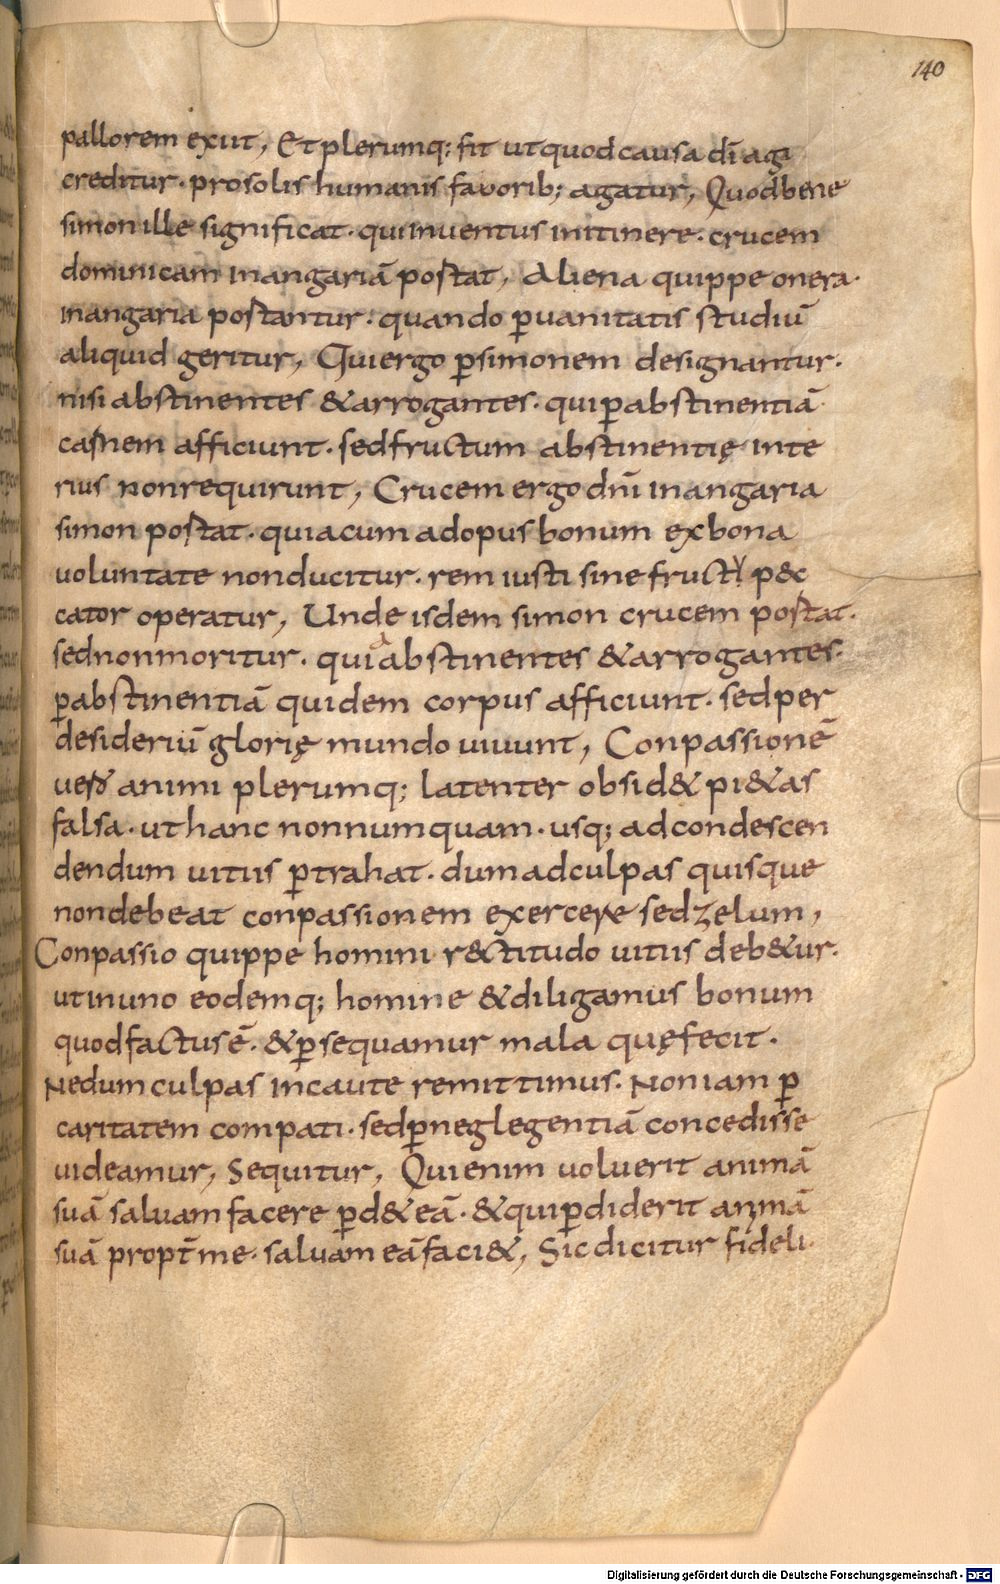 140
pallorem exiit, Et plerumq; fit ut quod causa dī agi
creditur. pro solis humanis fauorib; agatur, Quod bene
simon ille significat. qui inuentus in itinere. crucem
dominicam in angariā portat, Aliena quippe onera.
in angaria portantur. quando p̄ uanitatis studiū
aliquid geritur, Qui ergo p̄ simonem designantur.
nisi abstinentes & arrogantes. qui p̄ abstinentiā
carnem afficiunt. sed fructum abstinentię inte
rius non requirunt, Crucem ergo dn̄i in angaria
simon portat. quia cum ad opus bonum ex bona
uoluntate non ducitur. rem iusti sine fructu p&c
cator operatur, Unde isdem simon crucem portat.
sed non moritur. quia abstinentes & arrogantes.
p̄ abstinentiā quidem corpus afficiunt. sed per
desideriū glorię mundo uiuunt, Conpassionē
uero animi plerumq; latenter obsid& pi&as
falsa. ut hanc nonnumquam. usq; ad condescen
dendum uitiis p̄trahat. dum ad culpas quisque
non debeat conpassionem exercere sed zelum,
Conpassio quippe homini r&ctitudo uitiis deb&ur.
ut in uno eodemq; homine & diligamus bonum
quod factus ē. & p̄sequamur mala quę fecit.
Ne dum culpas incaute remittimus. Non iam p̄
caritatem compati. sed p̄ neglegentiā concedisse
uideamur, Sequitur, Qui enim uoluerit animā
suā saluam facere p̄d& eā. & qui p̄diderit animā
suā propt̄ me. saluam eā faci&, Sic dicitur fideli.
Digitalisierung gefördert durch die Deutsche Forschungsgemeinschaft - DFG